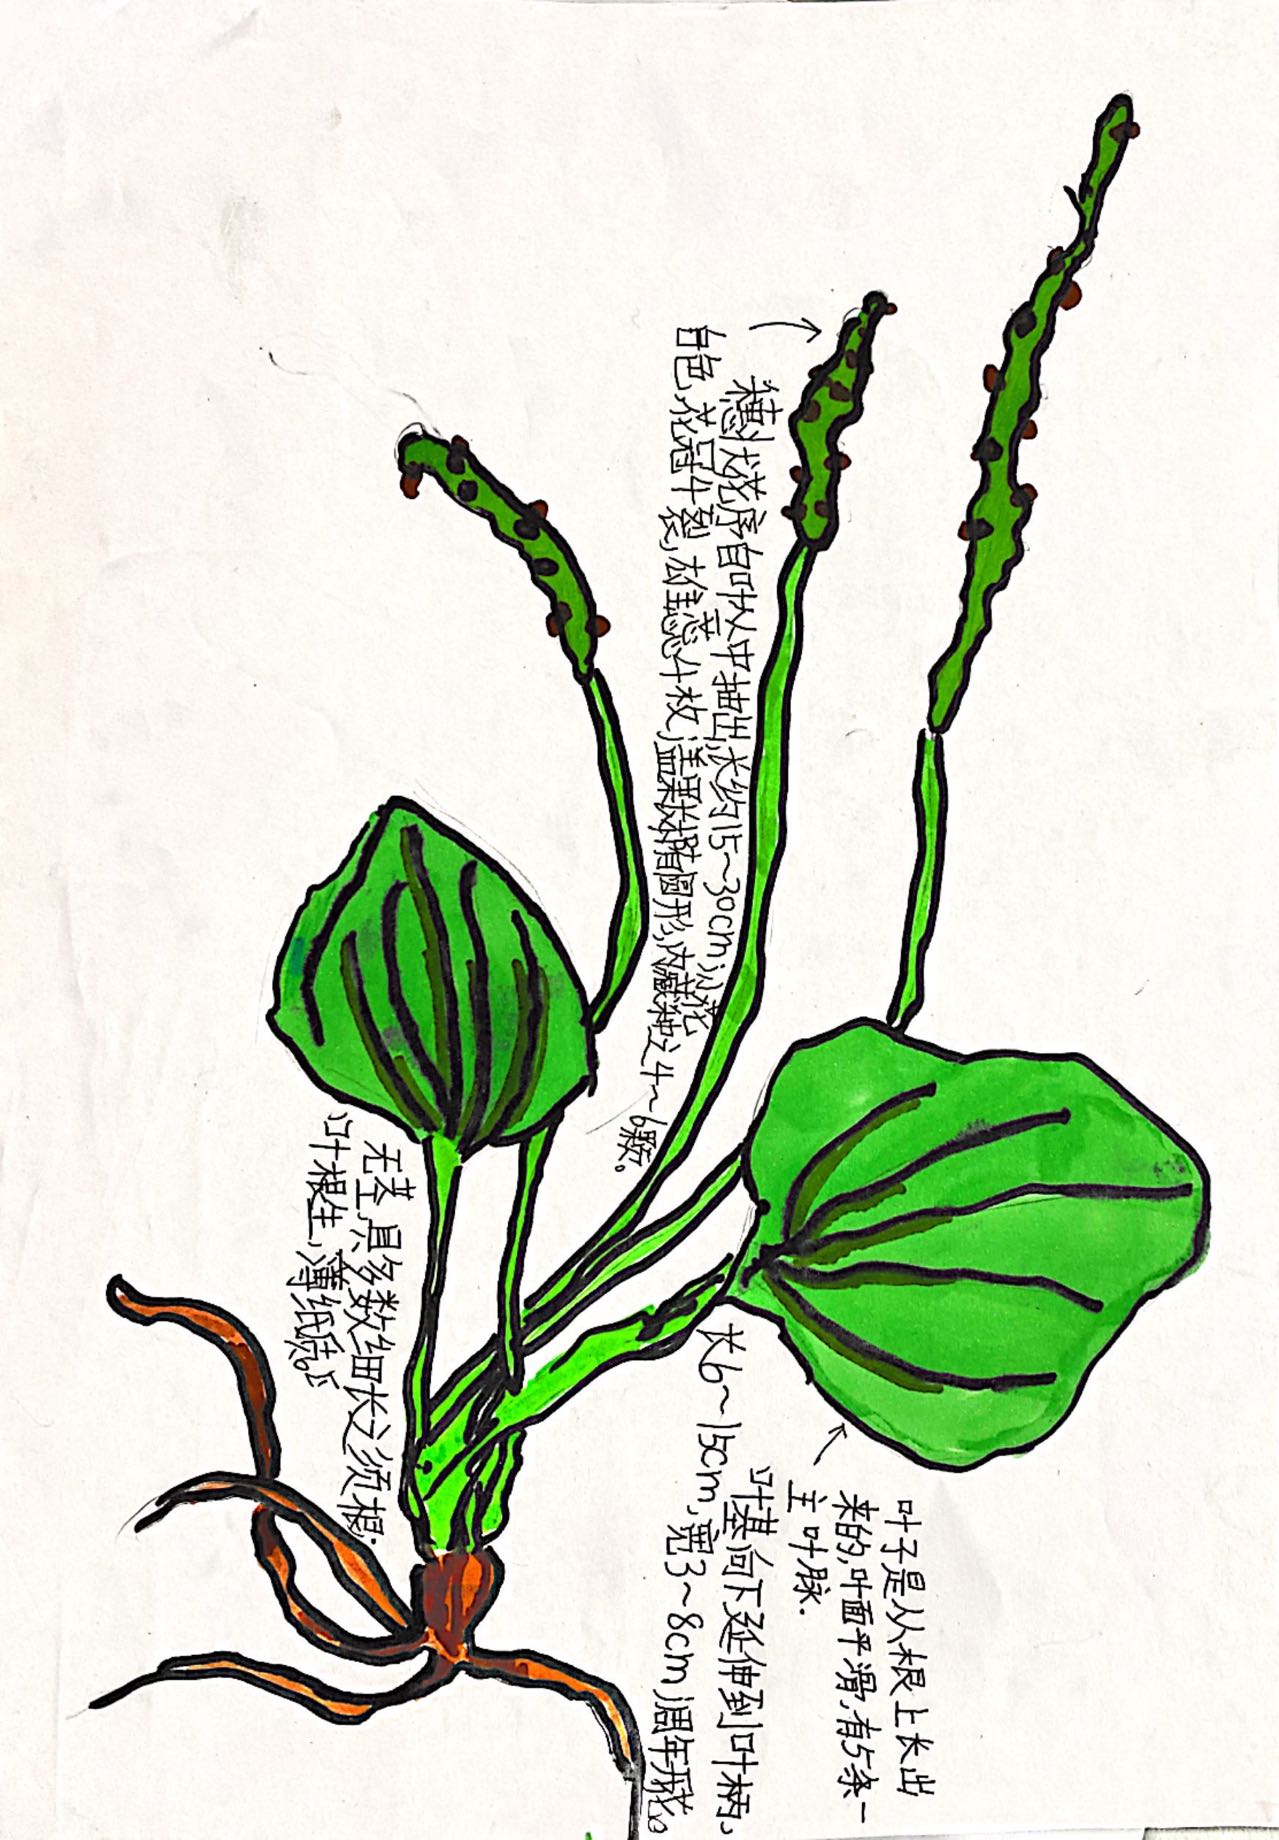 穗状花序自叶丛中抽出,长约15~30cm;小花
白色,花冠4裂,雄蕊4枚;盖果长椭圆形,内藏种子4~6颗。
无茎,具多数细长之须根.
叶根生,薄纸质。
叶子是从根上长出
来的,叶面平滑,有5条
主叶脉.
叶基向下延伸到叶柄,
长6~15cm,宽3~8cm,周年开花。